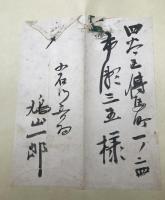 四谷區傳馬町一ノ二四
市郎三五 様
小石川音羽
鳩山一郎